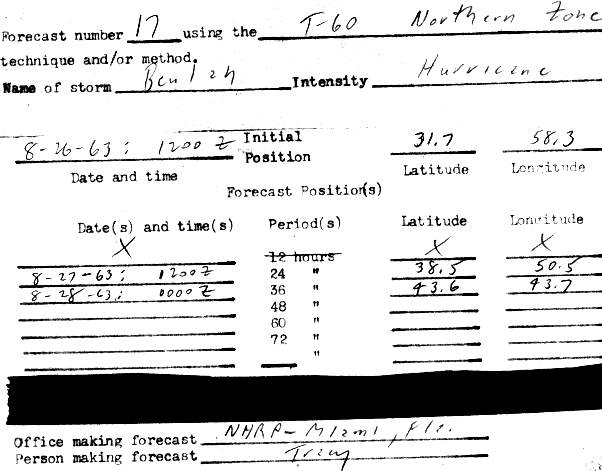 Forecast number 17 using the T-60 Northern Zone
technique and/or method.
Name of storm Beulah Intensity Hurricane
8-26-63: 1200 Z Initial Position 31.7 58.3
Date and time Latitude Longitude
Forecast Position(s)
Date(s) and time(s) Period(s) Latitude Longitude
X 12 hours X X
8-27-63: 1200Z 24 " 38.5 50.5
8-28-63: 0000Z 36 " 43.6 43.7
48 "
60 "
72 "
"
Office making forecast NHRP-Miami, Fla.
Person making forecast Tracy